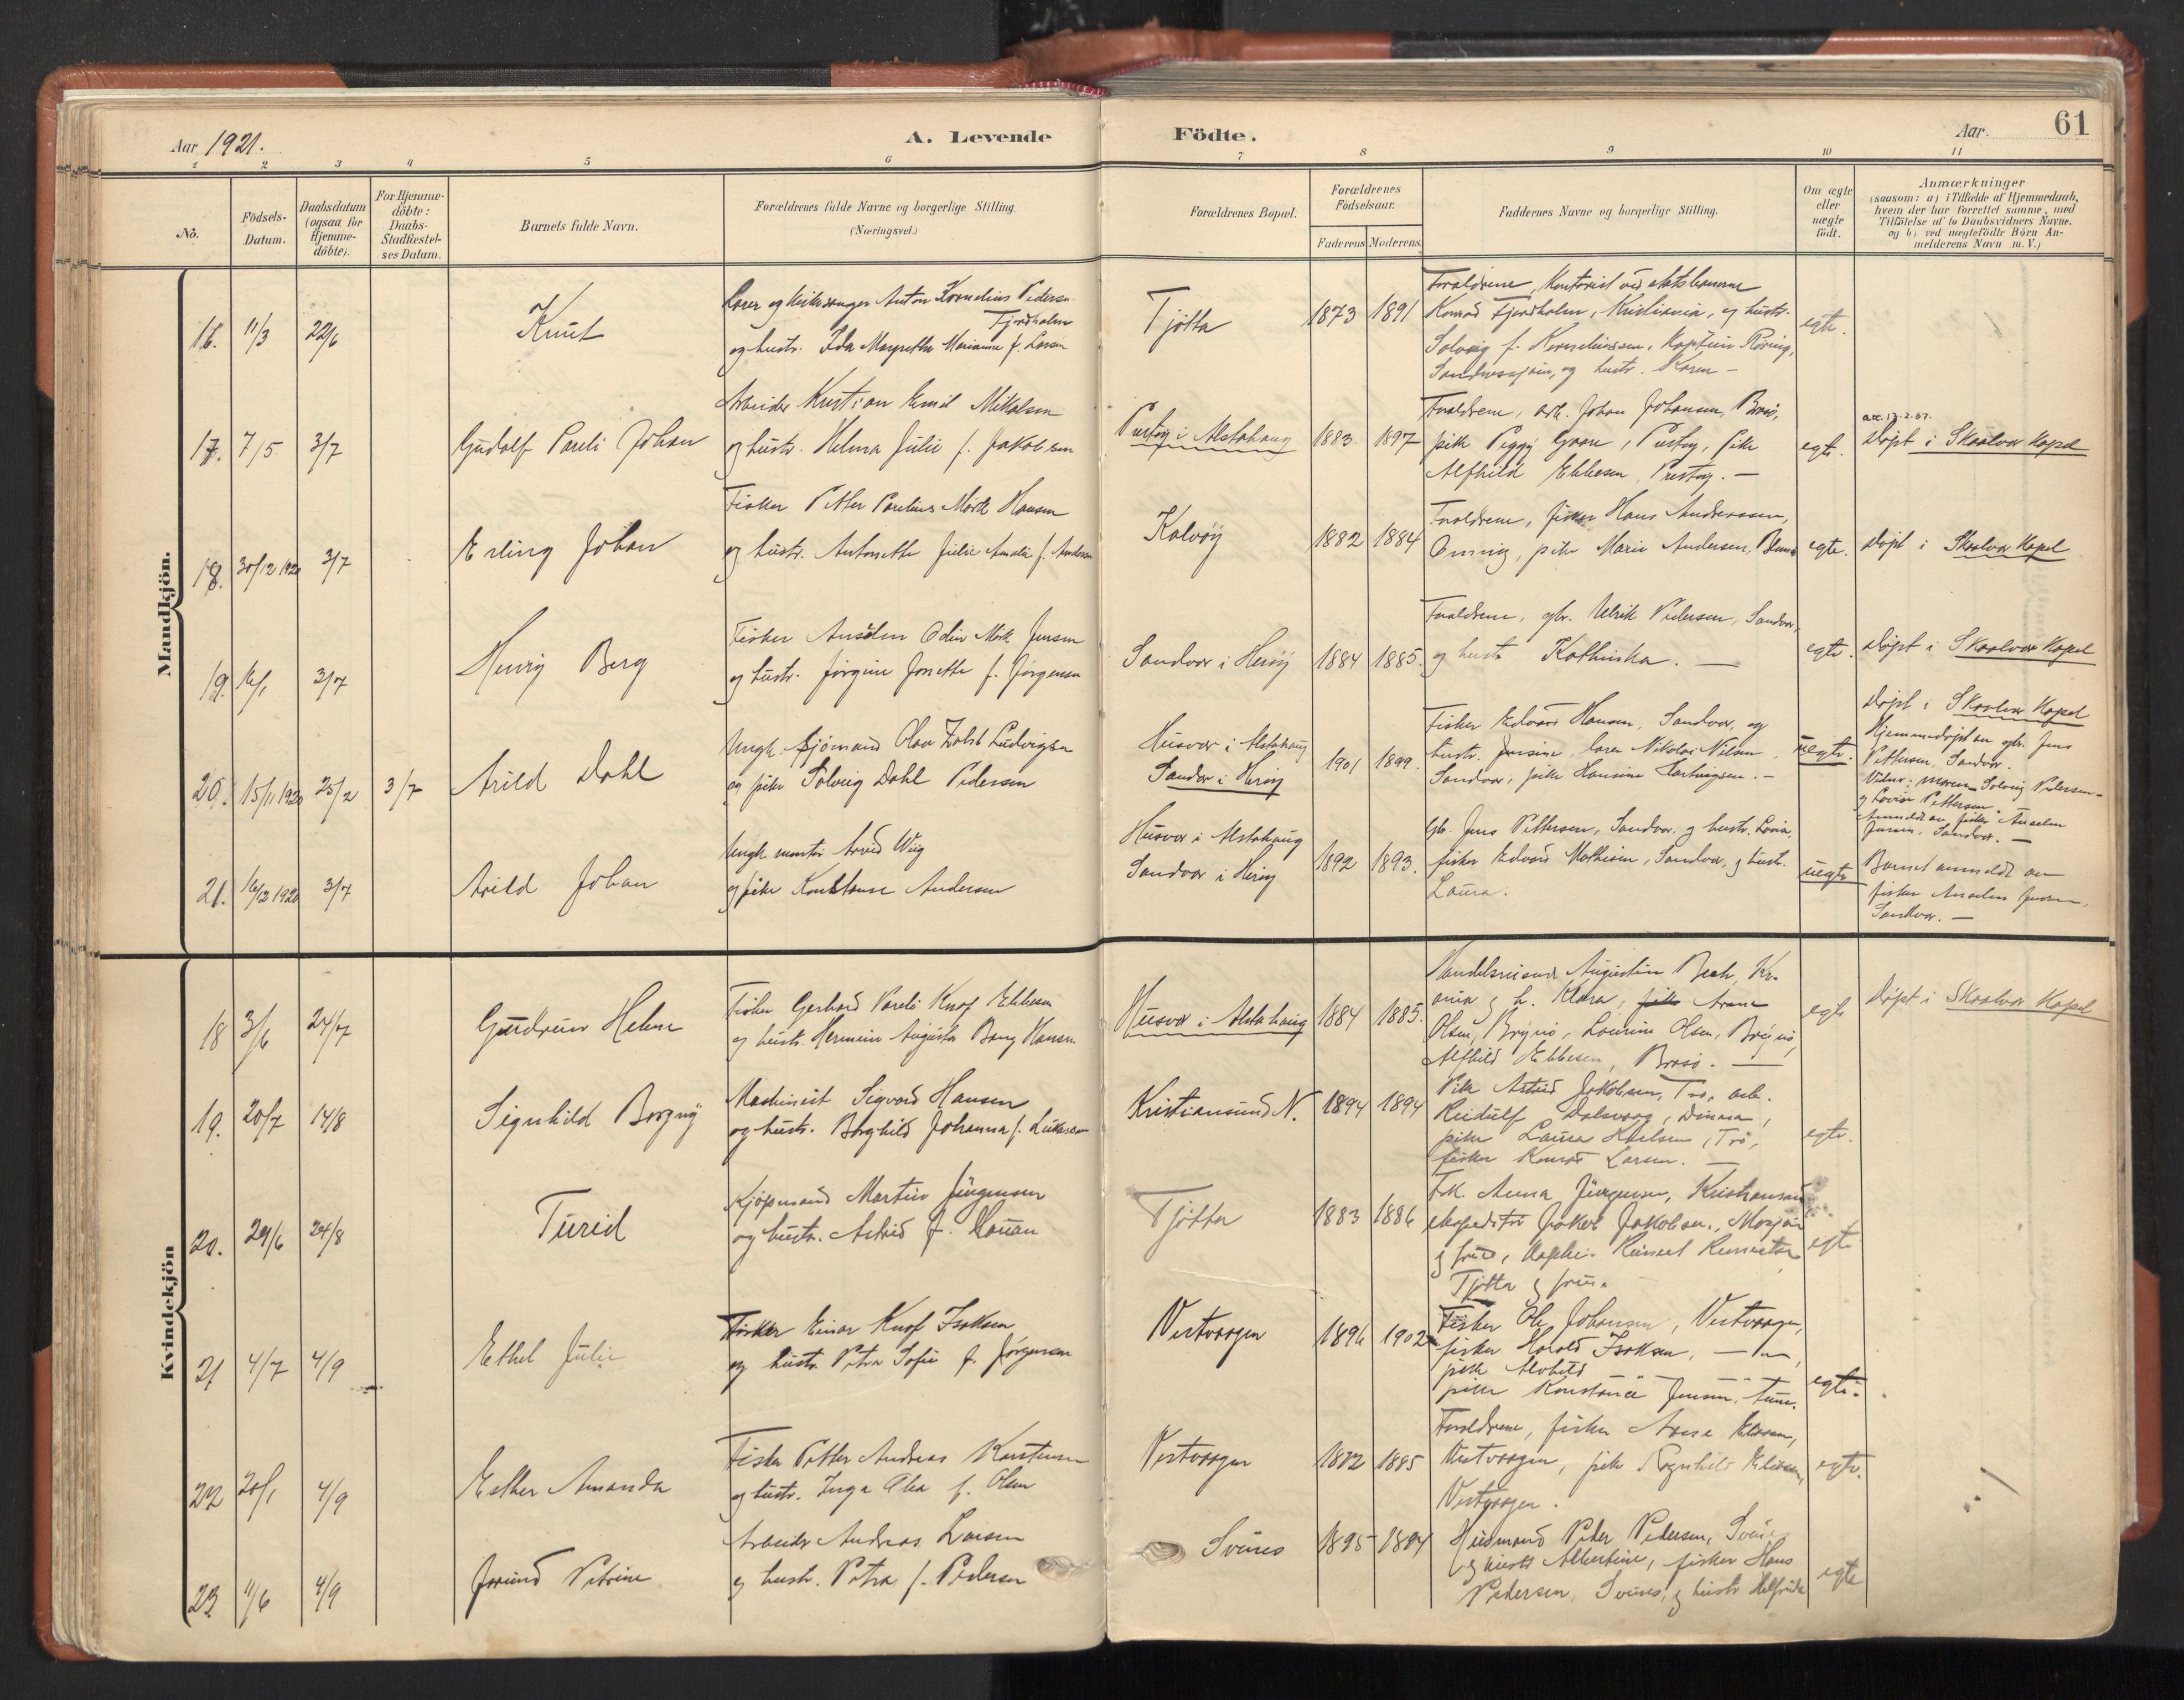 Aar 1921.
A. Levende
Födte.
Aar.
61
1 2 3 4 5 6 7 8 9 10 11
No.
Födsels-
Datum.
Daabsdatum
(ogsaa for
Hjemme-
döbte).
For Hjemme-
döbte:
Daabs-
Stadfæstel-
ses Datum.
Barnets fulde Navn.
Forældrenes fulde Navne og borgerlige Stilling
(Næringsvei.)
Forældrenes Bopæl.
Forældrenes
Födselsaar.
Faderens Moderens
Faddernes Navne og borgerlige Stilling.
Om ægte
eller
uægte
födt.
Anmærkninger
(saasom: a) i Tilfælde af Hjemmedaab,
hvem der har forrettet samme, med
Tilföielse af to Daabsvidners Navne.
og b) ved uægtefödte Börn An-
melderens Navn m. V.)
Mandkjön.
16. 11/3 22/6
Knut
Lærer og kirkesanger Anton Kornelius Pedersen
Fjordholm
og hustr. Ida Margrethe Marianne f. Larsen
Tjötta
1873 1891
Forældrene, Kontorist ved statsbanerne
Konrad Fjordholm, Kristiania, og hustr.
Solveig f. Kornelius­sen, Kaptein Röring,
Sandnessjöen, og hustr. Karen –
egte.
17. 7/5 3/7
Gudolf Pauli Johan
Arbeider Kristian Emil Mikalsen
og hustr. Helma Julie f. Jakobsen
Prestöy i Alstahaug
1883. 1897
Forældrene, arb. Johan Johansen, Brasö,
pike Peggy Gaare, Prestöy, pike
Alfhild Ebbesen, Prestöy. –
egte.
att. 17.2.57.
Döpt i Skaalvær Kapel
18. 30/12 1920 3/7
Erling Johan
Fisker Petter Paulius Mörk Hansen
og hustr. Antonette Julie Amalie f. Andersen
Kalvöy
1882 1884
Forældrene, fisker Hans Andreassen,
pike Marie Andersen,
egte.
Döpt i Skaalvær Kapel
19. 16/1 3/7
Henry Berg
Fisker Anselm Odin Mörk Jensen
og hustr. Jörgine Jonette f. Jörgensen
Sandvær i Heröy
1884 1885.
Forældrene, gbr. Ulrik Pedersen, Sandvær,
og hustr. Kathinka. –
egte.
Döpt i Skaalvær Kapel
20. 15/11 1920 25/2 3/7
Arild Dahl
Ungk. sjömand Olav Ludvigsen
og pike Solveig Dahl Pedersen
Husvær i Alstahaug
Sandvær i Heröy
1901 1899.
Fisker Edvard Hansen, Sandvær, og
hustr. Jensine, lærer Nikolai Nilsen
Sandvær, pike Hansine Hartvigsen. –
uegte.
Döpt i Skaalvær Kapel
Hjemmedöpt av gbr. Jens
Pettersen, Sandvær.
Vidner: moren Solveig Pedersen
og Lovise Pettersen.
Anmeldt av fisker Anselm
Jensen, Sandvær. –
21. 16/12 1920 3/7
Arild Johan
Ungk. montör Arvid Wiig
og pike Konstanse Andersen
Husvær i Alstahaug
Sandvær i Heröy
1892 1893.
Gbr. Jens Pettersen, Sandvær, og hustr. Lovise,
fisker Edvard Mathisen, Sandvær, og hustr.
Laura.
uegte
Barnet anmeldt av
fisker Anselm Jensen,
Sandvær. –
Kvindekjön
18 3/6 24/7
Gudrun Helene
Fisker Gerhard Pareli Knof Ebbesen
og hustr. Hermine Augusta Bang Hansen
Husvær i Alstahaug
1884 1885.
Handelsreisende Augustin Bech, Kr.
ania og h. Klara, Arne
Olsen, Laurine Olsen,
Alfhild Ebbesen, Brasö. –
egte
Döpt i Skaalvær Kapel
19. 20/7 14/8
Signhild Borgny
Maskinist Sigvard Hansen
og hustr. Borghild Johanna f. Lukassen
Kristiansund N.
1894 1894
Pike Astrid Jakobsen, Tro, arb.
Reidulf Dalsvaag, Dönna,
pike Laura Karlsen, Tro,
fisker Konrad Larsen. –
egte.
20. 29/6 24/8
Turid
Kjöpmand Martin Jürgensen
og hustr. Astrid f.
Tjötta
1883 1886
Frk. Anna Jürgensen, Kristiansund
ekspeditör Jakob Jakobsen, Mosjöen
og frue,
Tjötta og frue.
egte
21 4/7 4/9
Ethel Julie
Fisker Einar Knof Isaksen
og hustr. Petra Sofie f. Jörgensen
Vestvaagen
1896 1902
Fisker Ole Johansen, Vestvaagen,
fisker Harald Isaksen, –"–,
pike Alvhild –"–
pike Konstance Jensen,
egte.
22 20/1 4/9
Esther Amanda
Fisker Petter Andreas Karstensen
og hustr. Inga f. Olsen
Vestvaagen
1882 1885
Forældrene, fisker Arne Eliassen,
Vestvaagen, pike Ragnhild Eliassen,
Vestvaagen.
egte.
23. 11/6 4/9
Jorund Petrine
Arbeider Andreas Larsen
og hustr. Petra f. Pedersen
Svines
1895 1894
Husmand Peder Pedersen, Svines
og hustr. Albertine, fisker Hans
Pedersen, Svines, og hustr. Helfride
egte